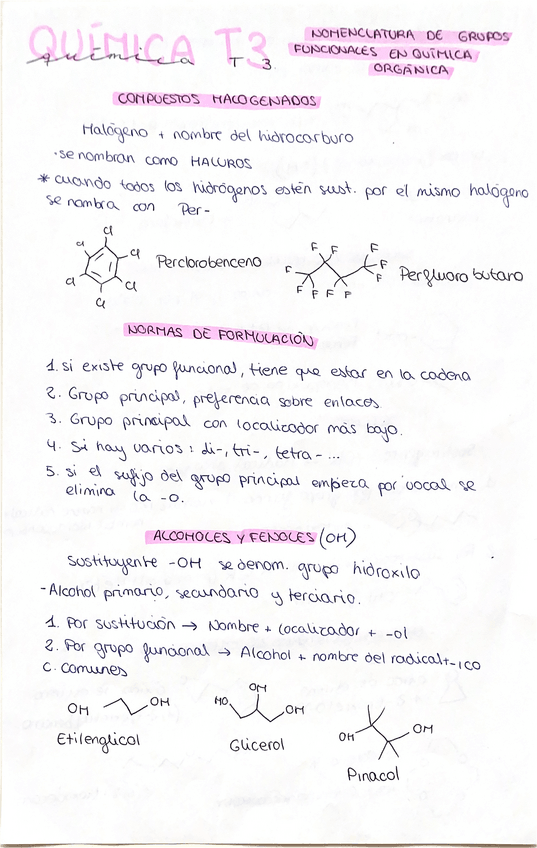 QUÍMICA T3
química T 3.
NOMENCLATURA DE GRUPOS
FUNCIONALES EN QUÍMICA
ORGÁNICA
COMPUESTOS HALOGENADOS
Halógeno + nombre del hidrocarburo
· se nombran como HALUROS
* cuando todos los hidrógenos estén sust. por el mismo halógeno
se nombra con Per-
Cl
Cl Cl
Cl Cl
Cl
Perclorobenceno
F F F
F F
F
F F F P
Perfluoro butano
NORMAS DE FORMULACIÓN
1. si existe grupo funcional, tiene que estar en la cadena
2. Grupo principal, preferencia sobre enlaces.
3. Grupo principal con localizador más bajo.
4. Si hay varios: di-, tri-, tetra- ...
5. si el sufijo del grupo principal empieza por vocal se
elimina la -o.
ALCOHOLES Y FENOLES (OH)
Sustituyente -OH se denom. grupo hidroxilo
- Alcohol primario, secundario y terciario.
1. Por sustitución → Nombre + localizador + -ol
2. Por grupo funcional → Alcohol + nombre del radical + -ico
C. comunes
OH OH
Etilenglicol
HO OH OH
Glicerol
OH OH
Pinacol